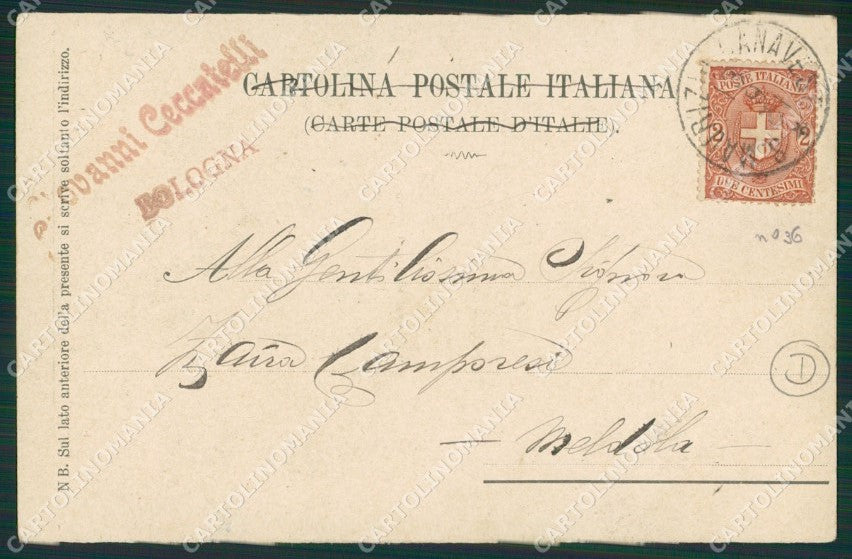 Giovanni Ceccatelli
BOLOGNA
CARTOLINA POSTALE ITALIANA
(CARTE POSTALE D'ITALIE).
POSTE ITALIANE
2 2
DUE CENTESIMI
no 36
Alla Gentilissima Signora
Zaira Camporesi
Meldola
D
N B. Sul lato anteriore della presente si scrive soltanto l'indirizzo.
CARTOLINOMANIA